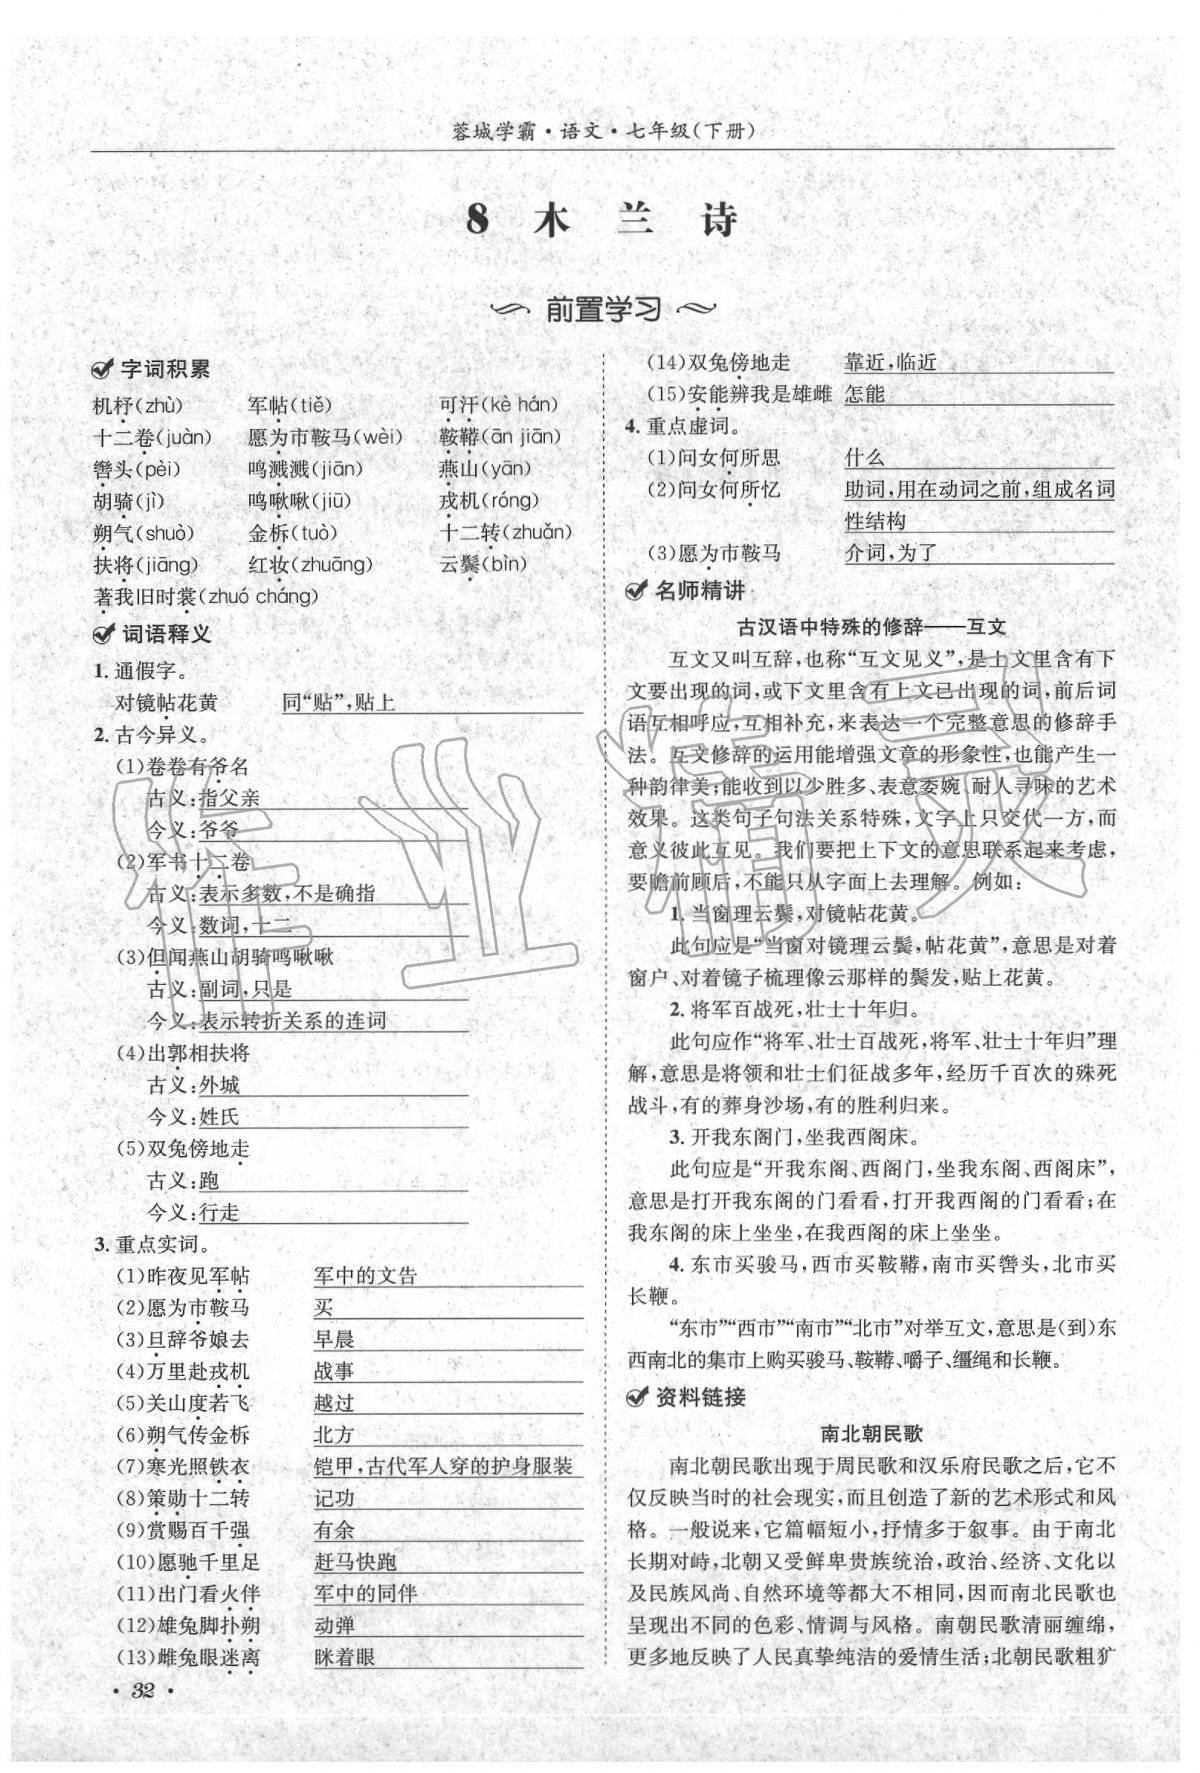 蓉城学霸·语文·七年级(下册)
8 木兰诗
前置学习
字词积累
机杼(zhù) 军帖(tiě) 可汗(kè hán)
十二卷(juàn) 愿为市鞍马(wèi) 鞍鞯(ān jiān)
辔头(pèi) 鸣溅溅(jiān) 燕山(yān)
胡骑(jì) 鸣啾啾(jiū) 戎机(róng)
朔气(shuò) 金柝(tuò) 十二转(zhuǎn)
扶将(jiāng) 红妆(zhuāng) 云鬓(bìn)
著我旧时裳(zhuó cháng)
词语释义
1. 通假字。
对镜帖花黄 同“贴”,贴上
2. 古今异义。
(1)卷卷有爷名
古义:指父亲
今义:爷爷
(2)军书十二卷
古义:表示多数,不是确指
今义:数词,十二
(3)但闻燕山胡骑鸣啾啾
古义:副词,只是
今义:表示转折关系的连词
(4)出郭相扶将
古义:外城
今义:姓氏
(5)双兔傍地走
古义:跑
今义:行走
3. 重点实词。
(1)昨夜见军帖 军中的文告
(2)愿为市鞍马 买
(3)旦辞爷娘去 早晨
(4)万里赴戎机 战事
(5)关山度若飞 越过
(6)朔气传金柝 北方
(7)寒光照铁衣 铠甲,古代军人穿的护身服装
(8)策勋十二转 记功
(9)赏赐百千强 有余
(10)愿驰千里足 赶马快跑
(11)出门看火伴 军中的同伴
(12)雄兔脚扑朔 动弹
(13)雌兔眼迷离 眯着眼
· 32 ·
(14)双兔傍地走 靠近,临近
(15)安能辨我是雄雌 怎能
4. 重点虚词。
(1)问女何所思 什么
(2)问女何所忆 助词,用在动词之前,组成名词
性结构
(3)愿为市鞍马 介词,为了
名师精讲
古汉语中特殊的修辞——互文
互文又叫互辞,也称“互文见义”,是上文里含有下
文要出现的词,或下文里含有上文已出现的词,前后词
语互相呼应,互相补充,来表达一个完整意思的修辞手
法。互文修辞的运用能增强文章的形象性,也能产生一
种韵律美;能收到以少胜多、表意委婉、耐人寻味的艺术
效果。这类句子句法关系特殊,文字上只交代一方,而
意义彼此互见。我们要把上下文的意思联系起来考虑,
要瞻前顾后,不能只从字面上去理解。例如:
1. 当窗理云鬓,对镜帖花黄。
此句应是“当窗对镜理云鬓,帖花黄”,意思是对着
窗户、对着镜子梳理像云那样的鬓发,贴上花黄。
2. 将军百战死,壮士十年归。
此句应作“将军、壮士百战死,将军、壮士十年归”理
解,意思是将领和壮士们征战多年,经历千百次的殊死
战斗,有的葬身沙场,有的胜利归来。
3. 开我东阁门,坐我西阁床。
此句应是“开我东阁、西阁门,坐我东阁、西阁床”,
意思是打开我东阁的门看看,打开我西阁的门看看;在
我东阁的床上坐坐,在我西阁的床上坐坐。
4. 东市买骏马,西市买鞍鞯,南市买辔头,北市买
长鞭。
“东市”“西市”“南市”“北市”对举互文,意思是(到)东
西南北的集市上购买骏马、鞍鞯、嚼子、缰绳和长鞭。
资料链接
南北朝民歌
南北朝民歌出现于周民歌和汉乐府民歌之后,它不
仅反映当时的社会现实,而且创造了新的艺术形式和风
格。一般说来,它篇幅短小,抒情多于叙事。由于南北
长期对峙,北朝又受鲜卑贵族统治,政治、经济、文化以
及民族风尚、自然环境等都大不相同,因而南北民歌也
呈现出不同的色彩、情调与风格。南朝民歌清丽缠绵,
更多地反映了人民真挚纯洁的爱情生活;北朝民歌粗犷
作业精灵